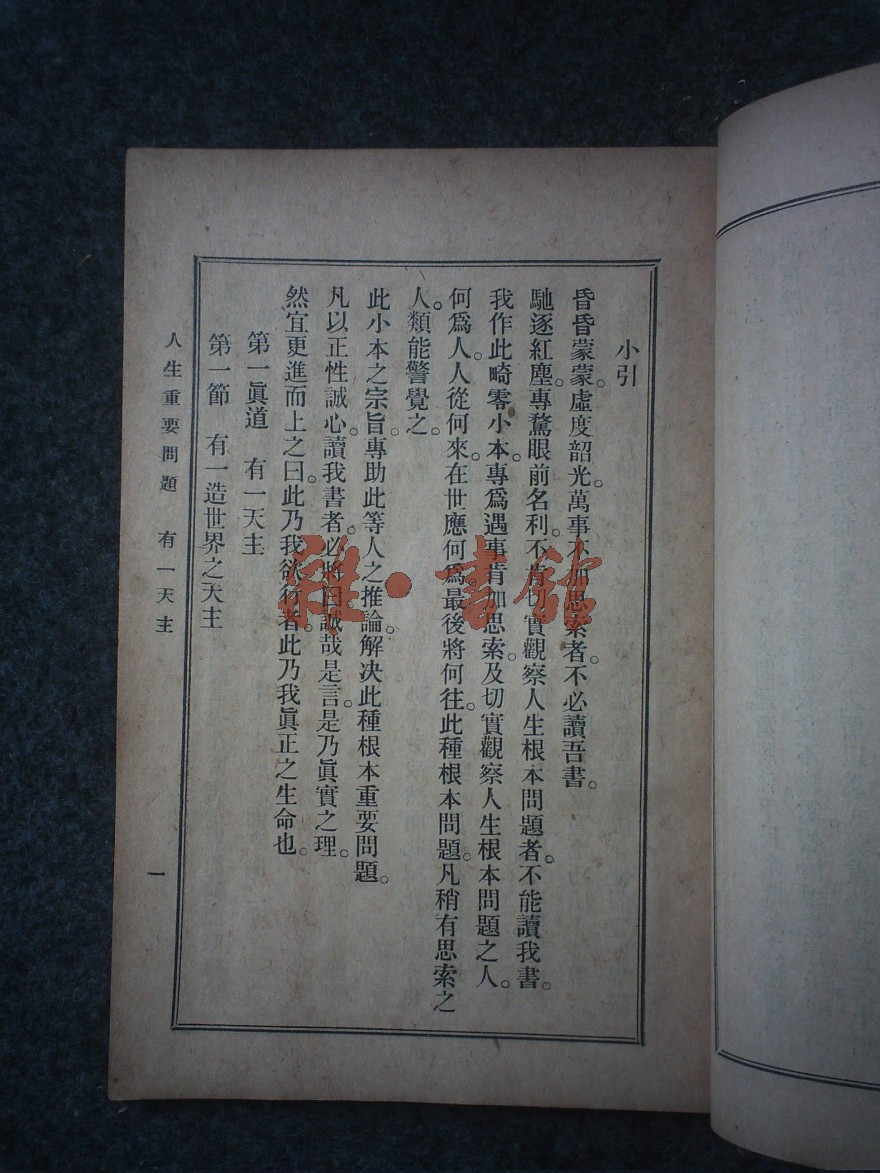 小引
昏昏蒙蒙。虛度韶光。萬事不加思索者。不必讀吾書。
馳逐紅塵。專騖眼前名利。不肯切實觀察人生根本問題者。不能讀我書。
我作此畸零小本。專爲遇事肯加思索。及切實觀察人生根本問題之人。
何爲人。人從何來。在世應何爲。最後將何往。此種根本問題。凡稍有思索之
人類能警覺之。
此小本之宗旨。專助此等人之推論。解决此種根本重要問題。
凡以正性誠心。讀我書者。必將曰。誠哉是言。是乃眞實之理。
然宜更進而上之曰。此乃我欲行者。此乃我眞正之生命也。
第一眞道　有一天主
第一節　有一造世界之天主
人生重要問題　有一天主
一
雜·書舘